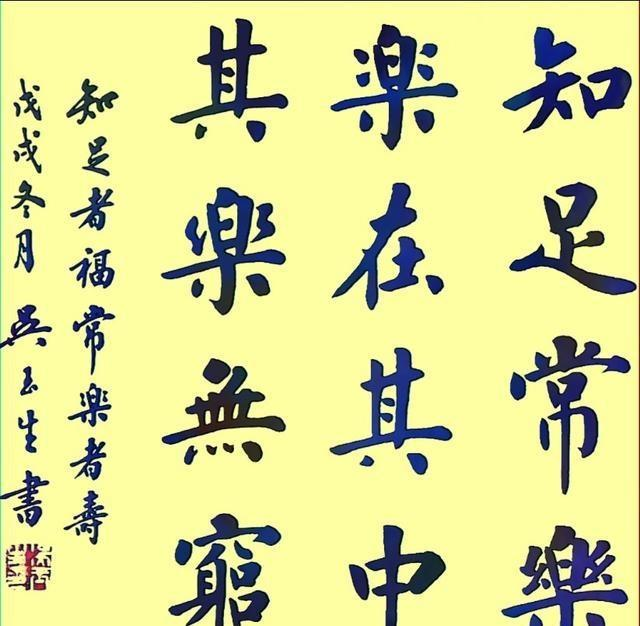 知足常樂
樂在其中
其樂無窮
知足者福常樂者壽
戊戌冬月 吳玉生書